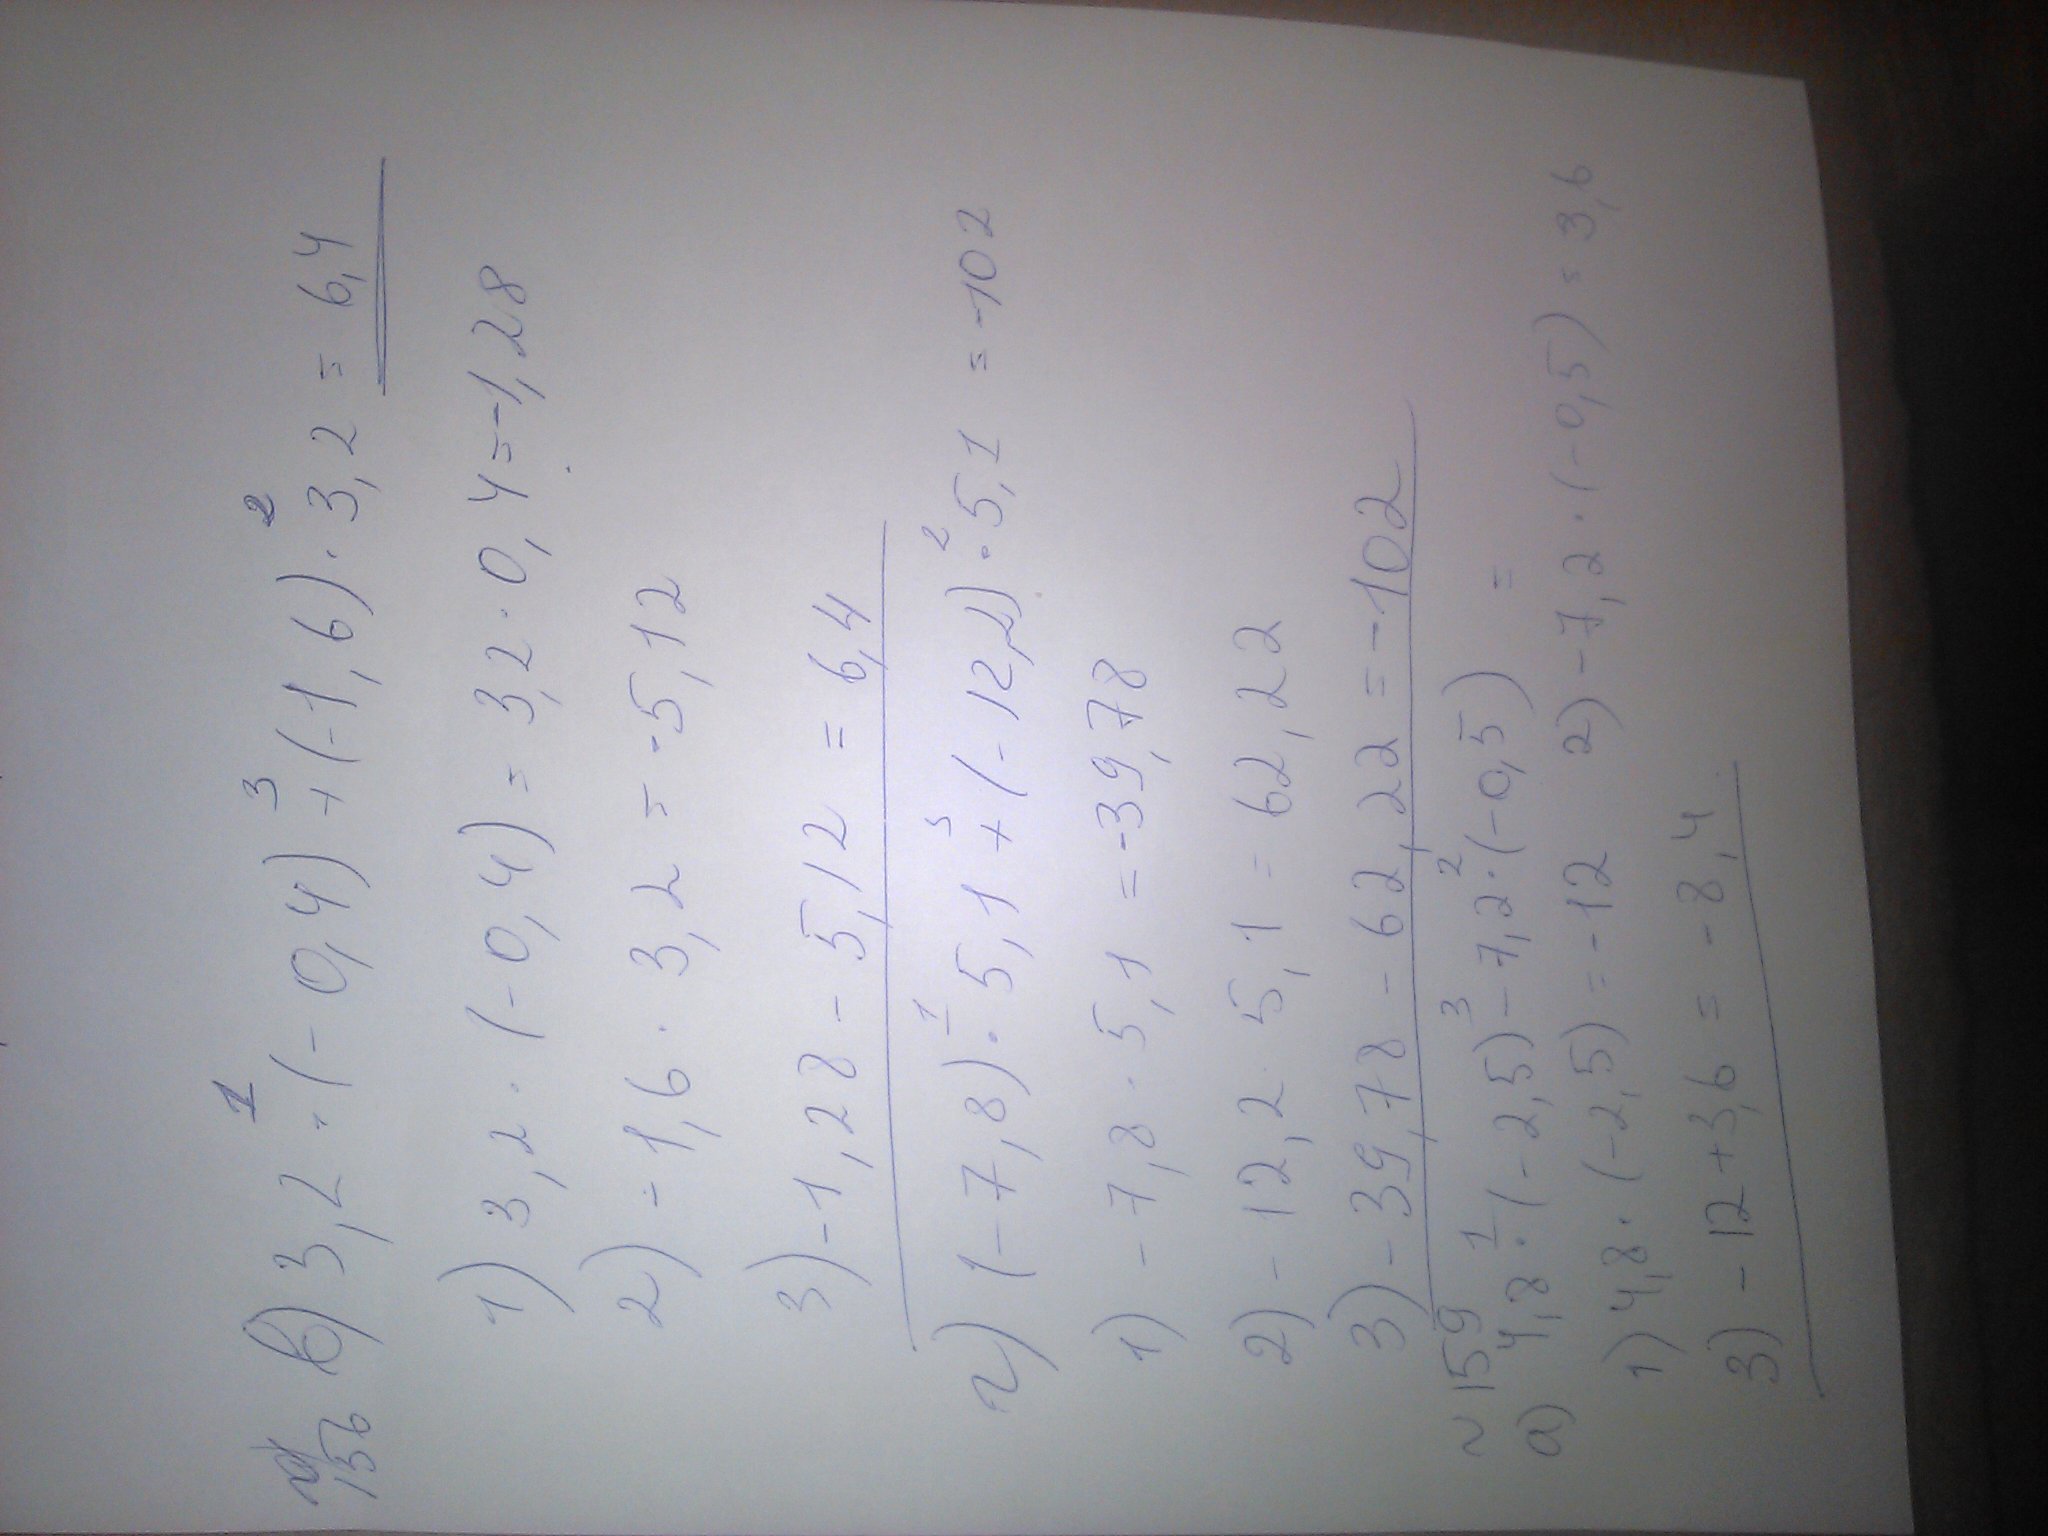 № 156 в) 3,2 · (-0,4) + (-1,6) · 3,2 = 6,4
1 3 2
1) 3,2 · (-0,4) = 3,2 · 0,4 = -1,28
2) -1,6 · 3,2 = -5,12
3) -1,28 - 5,12 = 6,4
г) (-7,8) · 5,1 + (-12,2) · 5,1 = -102
1 3 2
1) -7,8 · 5,1 = -39,78
2) -12,2 · 5,1 = 62,22
3) -39,78 - 62,22 = -102
~ 159
а) 4,8 · (-2,5) - 7,2 · (-0,5) =
1 3 2
1) 4,8 · (-2,5) = -12 2) -7,2 · (-0,5) = 3,6
3) -12 + 3,6 = -8,4